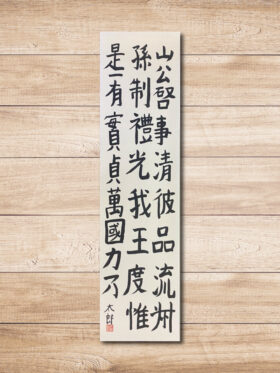 山公啓事清彼品流叔
孫制禮光我王度惟
是一有實貞萬國力乃
太